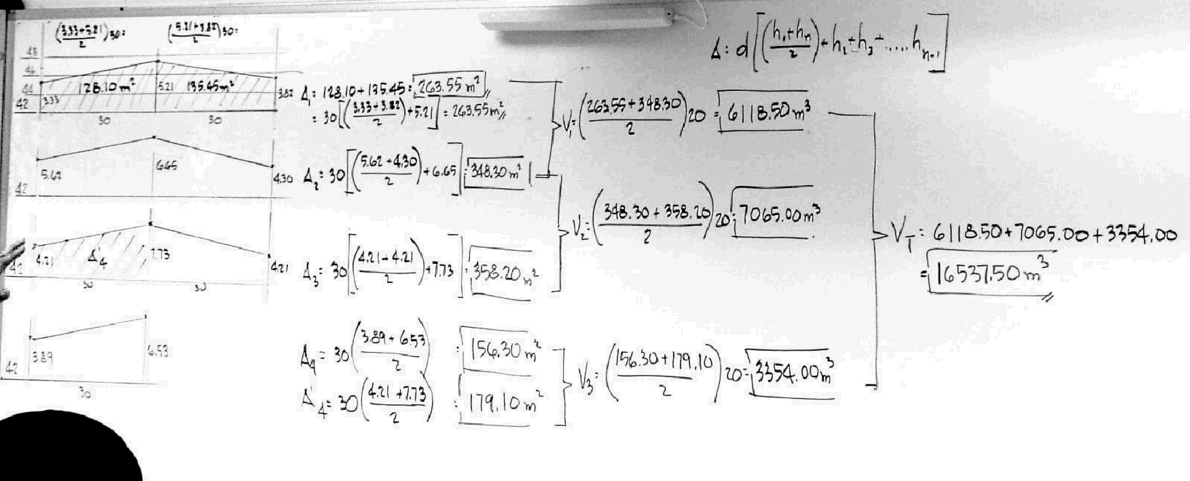 (3.33+5.21/2)30= (5.21+3.82/2)30=
A = d[(h₁+hn/2)+h₂+h₃+.....hn-1]
48
46
44
42 3.33 128.10m² 5.21 135.45m² 3.82
30 30
A₁ = 128.10 + 135.45 = 263.55 m²
= 30[(3.33+3.82/2)+5.21] = 263.55m²
V₁ = (263.55+348.30/2)20 = 6118.50m³
5.62 6.65 4.30
42
A₂ = 30[(5.62+4.30/2)+6.65] = 348.30 m²
V₂ = (348.30+358.20/2)20 = 7065.00m³
4.21 A'₄ 7.73 4.21
42
30 30
A₃ = 30[(4.21+4.21/2)+7.73] = 358.20 m²
V_T = 6118.50+7065.00+3354.00
= 16537.50 m³
3.89 6.53
42
30
A₄ = 30(3.89+6.53/2) = 156.30 m²
A'₄ = 30(4.21+7.73/2) = 179.10 m²
V₃ = (156.30+179.10/2)20 = 3354.00m³